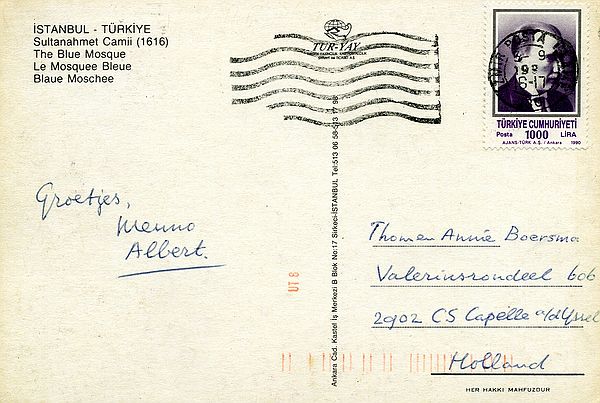 İSTANBUL - TÜRKİYE
Sultanahmet Camii (1616)
The Blue Mosque
Le Mosquee Bleue
Blaue Moschee
TUR-YAY
TÜRKİYE CUMHURİYETİ
Posta 1000 LİRA
AJANS-TÜRK A.Ş. / Ankara 1990
Groetjes,
Menno
Albert.
Ankara Cad. Kastel İş Merkezi B Blok No:17 Sirkeci-İSTANBUL Tel:513 06 58-513 17 96
Thom en Annie Boersma
Valeriusrondeel 606
2902 CS Capelle a/d Yssel
Holland
HER HAKKI MAHFUZDUR